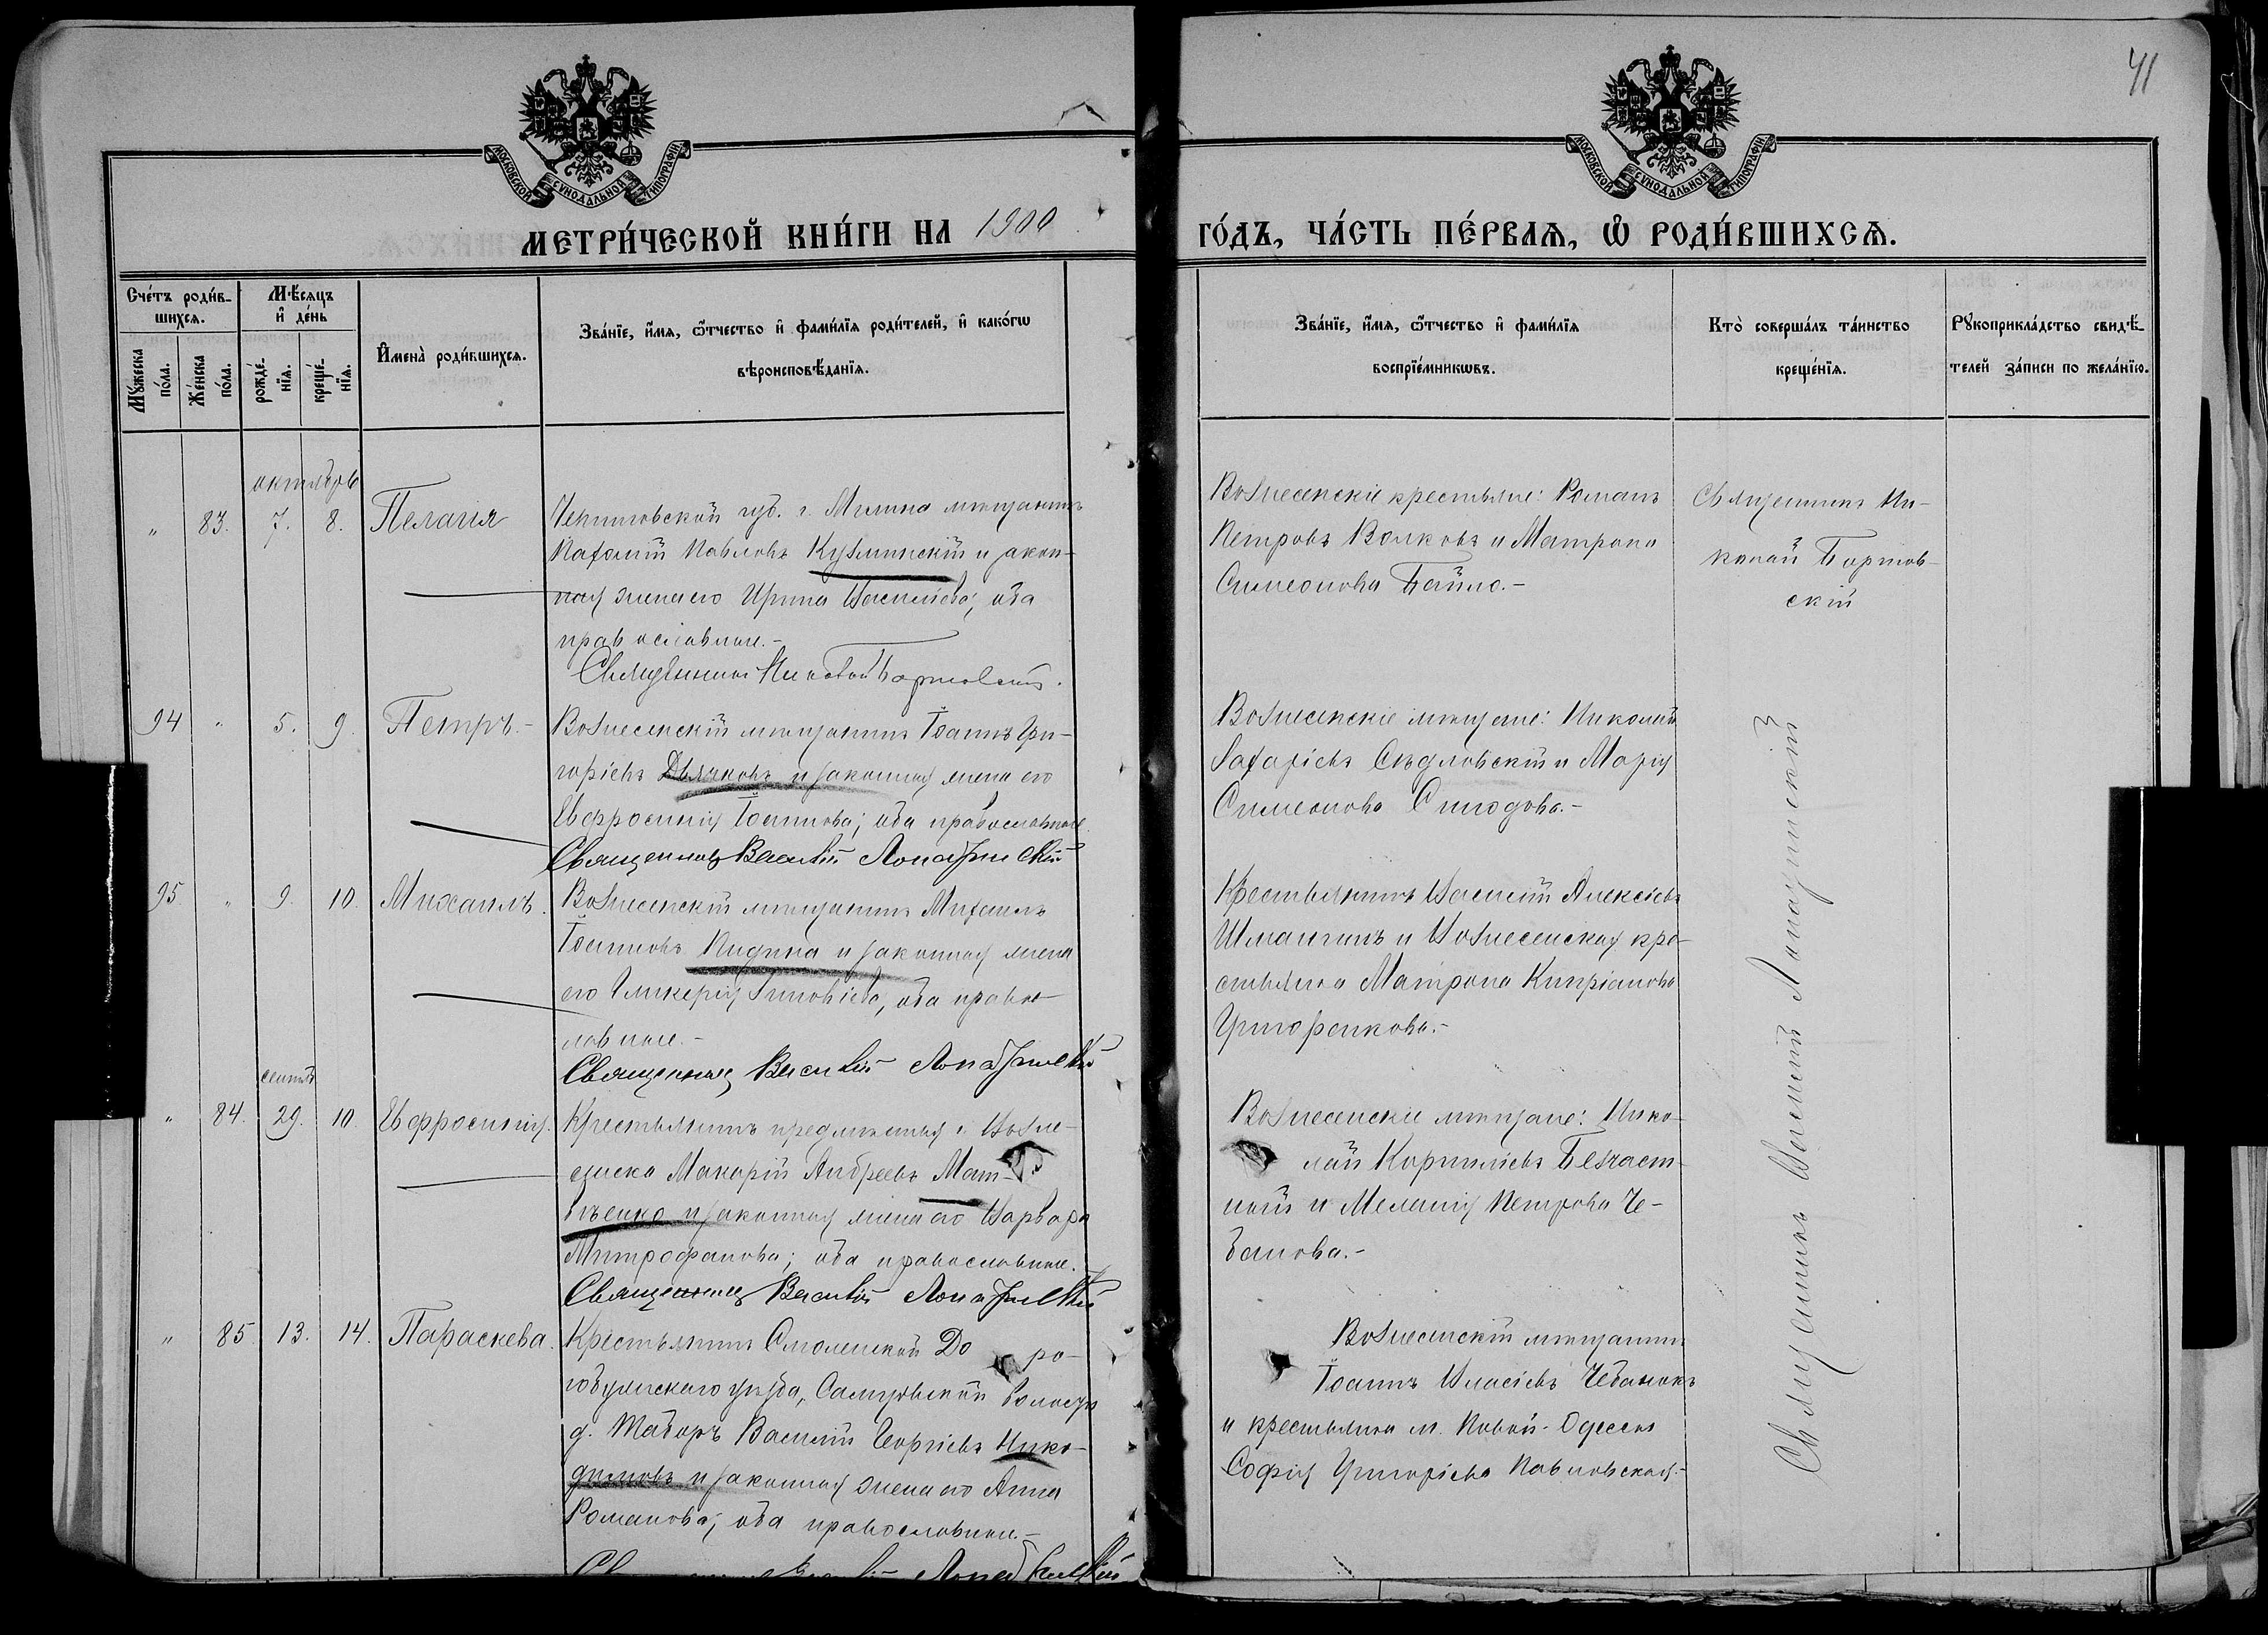 41
МОСКОВСКОЙ СѴНОДАЛЬНОЙ ТИПОГРАФІИ
МОСКОВСКОЙ СѴНОДАЛЬНОЙ ТИПОГРАФІИ
МЕТРИ́ЧЕСКОЙ КНИ́ГИ НА 1900
ГО́ДЪ, ЧА́СТЬ ПЕ́РВАѦ, Ѡ҆ РОДИ́ВШИХСѦ.
Сче́тъ роди́в-
шихсѧ.
Мꙋ́жеска по́ла.
Же́нска по́ла.
Мѣ́сѧцъ
и҆ де́нь
рожде́-
нїѧ.
креще́-
нїѧ.
И҆мена̀ роди́вшихсѧ.
Зва́нїе, и҆́мѧ, ѻ҆́тчество и҆ фами́лїѧ роди́телей, и҆ како́гѡ
вѣроисповѣ́данїѧ.
Зва́нїе, и҆́мѧ, ѻ҆́тчество и҆ фами́лїѧ
воспрїе́мникѡвъ.
Кто̀ соверша́лъ та́инство
креще́нїѧ.
Рꙋкоприкла́дство свидѣ́-
телей за́писи по жела́нїю.
октябрь
" 83. 7. 8. Пелагія
Черниговской губ. г. Мглина мѣщанинъ
Пахомій Павловъ Кузминскій и закон-
ная жена его Ирина Васильева; оба
православные.-
Священникъ Николай Бортовскій.
Вознесенскіе крестьяне: Романъ
Петровъ Волковъ и Матрона
Симеонова Байло.-
Священникъ Ни-
колай Бортов-
скій
94 " 5. 9. Петръ.-
Вознесенскій мѣщанинъ Іоаннъ Гри-
горіевъ Дьячковъ и законная жена его
Евфросинія Іоаннова; оба православные.
Священникъ Василій
Вознесенскіе мѣщане: Николай
Захаріевъ Слѣдловскій и Марія
Симеонова Синодова.-
95 " 9. 10. Михаилъ.
Вознесенскій мѣщанинъ Михаилъ
Іоанновъ Кидина и законная жена
его Гликерія Зиновіева, оба правос-
лавные.-
Священникъ Василій
Крестьянинъ Василій Алексіевъ
Шмангинъ и Вознесенская кре-
стьянка Матрона Кипріанова
сентяб
" 84. 29. 10. Евфросинія.
Крестьянинъ предмѣстья г. Возне-
сенска Макарій Андреевъ Мат-
вѣенко и законная жена его Варвара
Митрофанова; оба православные.
Священникъ Василій
Вознесенскіе мѣщане: Нико-
лай Корниліевъ Безчаст-
ный и Меланія Петрова Че-
банова.-
" 85. 13. 14. Параскева.
Крестьянинъ Смоленской До ро-
гобужскаго уѣзда, волости
д. Таборъ Василій Георгіевъ Нико-
димовъ и законная жена его Анна
Романова; оба православные.-
Вознесенскій мѣщанинъ
Іоаннъ Власіевъ Чебанокъ
и крестьянка м. Новой-Одессы
Софія Григоріева Павловская.-
Священникъ Василій